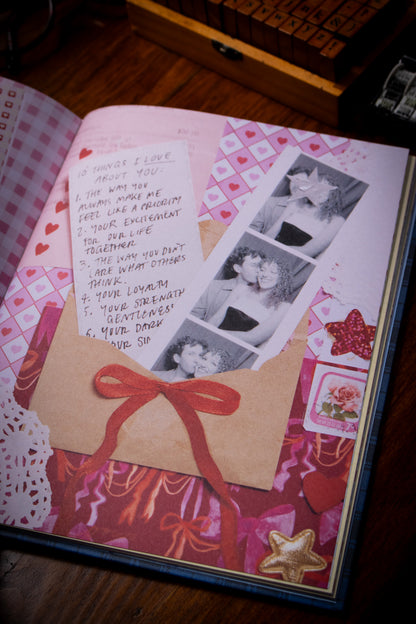 10 THINGS I LOVE
ABOUT YOU:
1. THE WAY YOU
ALWAYS MAKE ME
FEEL LIKE A PRIORITY
2. YOUR EXCITEMENT
FOR OUR LIFE
TOGETHER
3. THE WAY YOU DON'T
CARE WHAT OTHERS
THINK.
4. YOUR LOYALTY
5. YOUR STRENGTH
GENTLENESS
6. YOUR DARK